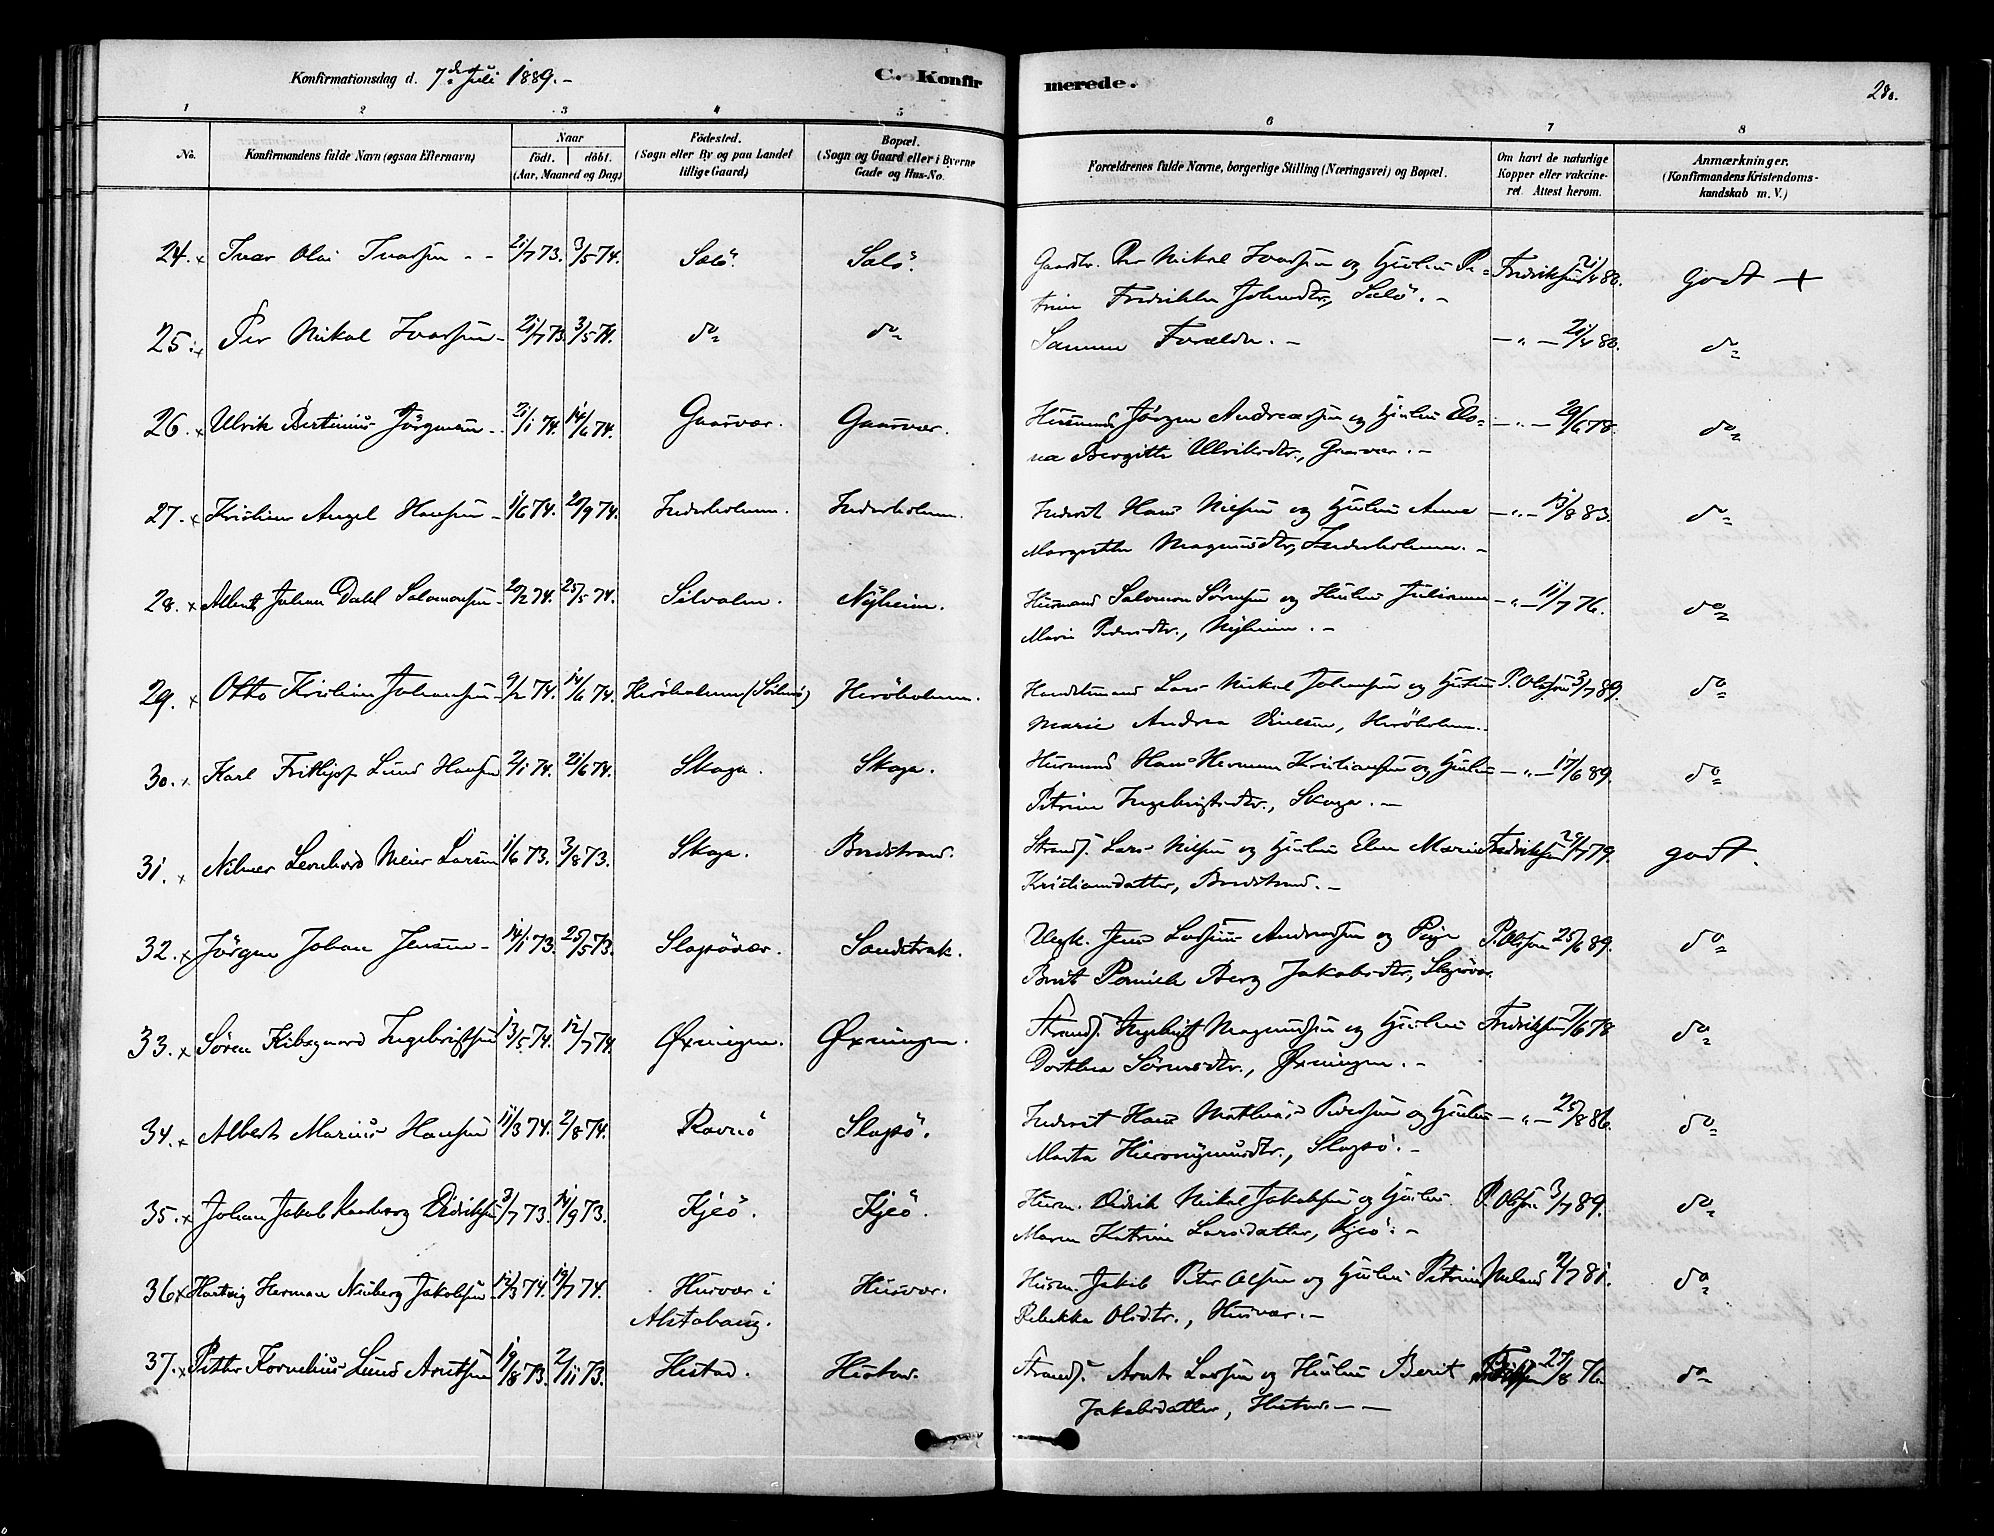 Konfirmationsdag d. 7de Juli 1889. -
C. Konfirmerede.
280.
1 2 3 4 5 6 7 8
No.
Konfirmandens fulde Navn (ogsaa Efternavn)
Naar
födt. | döbt.
(Aar, Maaned og Dag)
Födested.
(Sogn eller By og paa Landet
tillige Gaard)
Bopæl.
(Sogn og Gaard eller i Byerne
Gade og Hus-No.
Forældrenes fulde Navne, borgerlige Stilling (Næringsvei) og Bopæl.
Om havt de naturlige
Kopper eller vakcine-
ret. Attest herom.
Anmærkninger.
(Konfirmandens Kristendoms-
kundskab m. V.)
24. x Ivar Olai Ivarsen - - 21/7 73. 3/5 74. Salö. Salö. Gaardbr. Per Nikal Ivarsen og Hustru Pe- Fredriksen 21/4 80. godt +
trine Fredrikke Johnsdtr, Salö. -
25. x Per Nikal Ivarsen - 21/7 73. 3/5 74. do do Samme Forældre. - - " - 21/4 80. do
26. x Ulrik Bertinius Jörgensen - 21/1 74. 14/6 74. Gaasvær. Gaasvær. Husmand Jörgen Andreassen og Hustru Ele- - " - 29/6 78. do
na Bergitte Ulriksdtr., Gaasvær. -
27. x Kristian Angel Hansen - 1/6 74. 20/9 74. Inderholmen. Inderholmen. Inderst Hans Nielsen og Hustru Anne - " - 13/8 83. do
Margrethe Magnusdtr, Inderholmen. -
28. x Albert Johan Dahl Salomonsen - 20/2 74. 25/5 74. Silvalen. Nyheim. Husmand Salomon Sörensen og Hustru Julianne - " - 11/7 76. do
Marie Pedersdtr., Nyheim. -
29. x Otto Kristian Johansen - 9/2 74. 14/6 74. Heröholmen (Sörherö) Heröholmen. Handelsmand Lars Nikal Johansen og Hustru P. Olsen 3/7 89. do
Marie Andrea, Heröholmen.
30. x Karl Frithjof Lund Hansen 2/1 74. 21/6 74. Skaga. Skaga. Husmand Hans Herman Kristiansen og Hustru - " - 17/6 89. do
Petrine Ingebrigtsdtr., Skaga. -
31. x Nilmer Leonhard Meier Larsen 1/6 73. 3/8 73. Skaga. Bredstrand. Strands. Lars Nielsen og Hustru Elen Marie Fredriksen 29/7 79. godt.
Kristiansdatter, Bredstrand. -
32. x Jörgen Johan Jensen - 14/1 73. 25/5 73. Slapövær. Sandstrak. Ungk. Jens Andreassen og Pige P. Olsen 25/6 89. do
Berit Pernille Berg Jakobsdtr, Slapövær.
33. x Sören Kibsgaard Ingebrigtsen 13/5 74. 12/7 74. Øxningen. Øxningen. Strands. Ingebrigt Magnussen og Hustru Fredriksen 7/6 78 do
Dorthea Sörensdtr., Øxningen. -
34. x Albert Marius Hansen 11/3 74. 2/8 74. Ravnö Slapsö. Inderst Hans Mathias Pedersen og Hustru - " - 25/8 86. do
Marta Hieronymusdtr., Slapsö. -
35. x Johan Jakob Didriksen 3/7 73. 14/9 73. Kjeö. Kjeö. Husm. Didrik Nikal Jakobsen og Hustru P. Olsen 3/7 89. do
Maren Katrine Larsdatter, Kjeö. -
36 x Hartvig Herman Neuberg Jakobsen - 12/3 74. 19/7 74. Husvær i Husvær. Husm. Jakob Peter Olsen og Hustru Petrine 2/7 81. do
Alstahaug. Rebekka Olsdtr., Husvær. -
37. x Petter Kornelius Lund Arntsen 19/8 73. 2/11 73. Hestad. Hestad. Strands. Arnt Larsen og Hustru Berit 27/8 76. do
Jakobsdatter, Hestad. - -